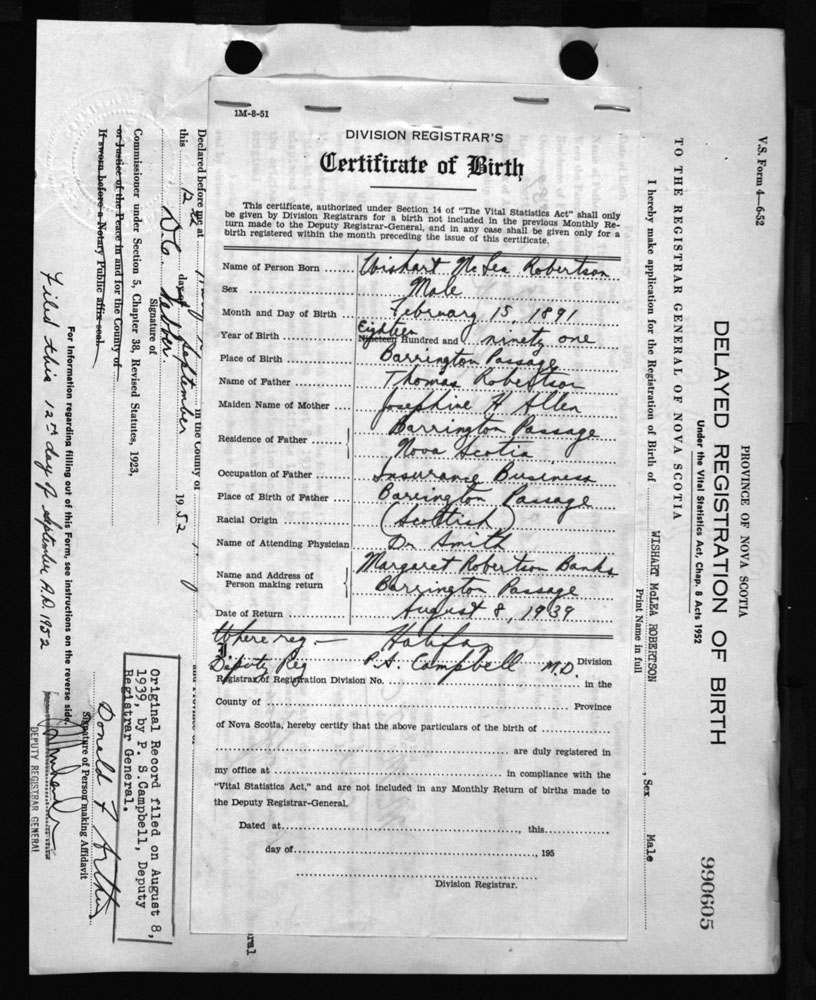 1M-8-51
DIVISION REGISTRAR'S
Certificate of Birth
This certificate, authorized under Section 14 of "The Vital Statistics Act" shall only
be given by Division Registrars for a birth not included in the previous Monthly Re-
turn made to the Deputy Registrar-General, and in any case shall be given only for a
birth registered within the month preceding the issue of this certificate.
Name of Person Born ..... Wishart McLea Robertson
Sex ..... Male
Month and Day of Birth ..... February 15, 1891
Eighteen
Year of Birth ..... Nineteen Hundred and ninety one
Place of Birth ..... Barrington Passage
Name of Father ..... Thomas Robertson
Maiden Name of Mother ..... Josephine H Allen
Residence of Father ..... Barrington Passage
Nova Scotia
Occupation of Father ..... Insurance Business
Place of Birth of Father ..... Barrington Passage
Racial Origin ..... (Scottish)
Name of Attending Physician Dr Smith
Name and Address of
Person making return ..... Margaret Robertson Banks
Barrington Passage
Date of Return ..... August 8, 1939
Where reg. — Halifax
Deputy Reg P.S. Campbell M.D. Division
Registrar of Registration Division No. ..... in the
County of ..... Province
of Nova Scotia, hereby certify that the above particulars of the birth of .....
..... are duly registered in
my office at ..... in compliance with the
"Vital Statistics Act," and are not included in any Monthly Return of births made to
the Deputy Registrar-General.
Dated at ....., this .....
day of ....., 195
Division Registrar.
V.S. Form 4—6-52
PROVINCE OF NOVA SCOTIA
DELAYED REGISTRATION OF BIRTH
Under the Vital Statistics Act, Chap. 8 Acts 1952
990605
TO THE REGISTRAR GENERAL OF NOVA SCOTIA
I hereby make application for the Registration of Birth of WISHART McLEA ROBERTSON, Sex Male
Print Name in full
Declared before me at ..... in the County of
this 12th day of September 1952
Signature of
Commissioner under Section 5, Chapter 38, Revised Statutes, 1923,
or Justice of the Peace in and for the County of
If sworn before a Notary Public affix seal
Donald F Arthur
Signature of Person making Affidavit
For information regarding filling out of this Form, see instructions on the reverse side.
Filed this 12th day of September A.D. 1952
DEPUTY REGISTRAR GENERAL
Original Record filed on August 8,
1939, by P. S. Campbell, Deputy
Registrar General.